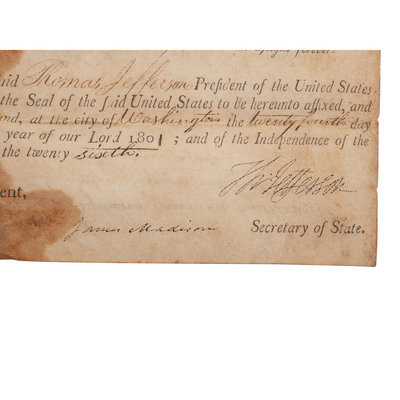 forever.
said Thomas Jefferson President of the United States
the Seal of the said United States to be hereunto affixed, and
and, at the city of Washington the twenty fourth day
year of our Lord 1801; and of the Independence of the
the twenty sixth.
Th: Jefferson
ent,
James Madison Secretary of State.